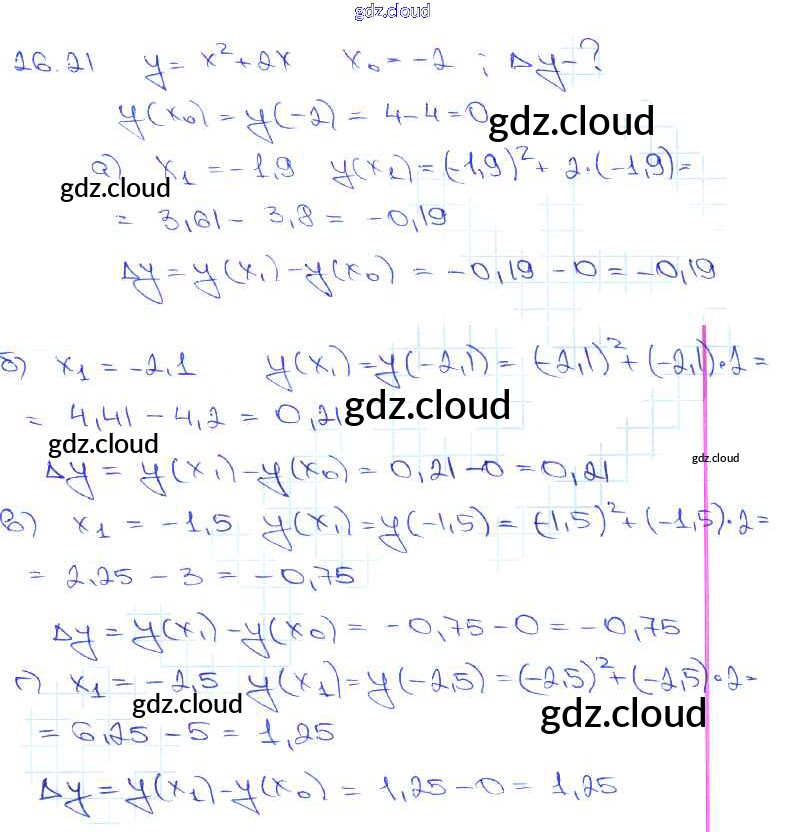 gdz.cloud
26.21 y = x² + 2x x₀ = -2 ; Δy - ?
y(x₀) = y(-2) = 4 - 4 = 0 gdz.cloud
а) x₁ = -1,9 y(x₁) = (-1,9)² + 2·(-1,9) =
gdz.cloud
= 3,61 - 3,8 = -0,19
Δy = y(x₁) - y(x₀) = -0,19 - 0 = -0,19
б) x₁ = -2,1 y(x₁) = y(-2,1) = (-2,1)² + (-2,1)·2 =
= 4,41 - 4,2 = 0,21 gdz.cloud
gdz.cloud
gdz.cloud
Δy = y(x₁) - y(x₀) = 0,21 - 0 = 0,21
в) x₁ = -1,5 y(x₁) = y(-1,5) = (-1,5)² + (-1,5)·2 =
= 2,25 - 3 = -0,75
Δy = y(x₁) - y(x₀) = -0,75 - 0 = -0,75
г) x₁ = -2,5 y(x₁) = y(-2,5) = (-2,5)² + (-2,5)·2 =
gdz.cloud gdz.cloud
= 6,25 - 5 = 1,25
Δy = y(x₁) - y(x₀) = 1,25 - 0 = 1,25